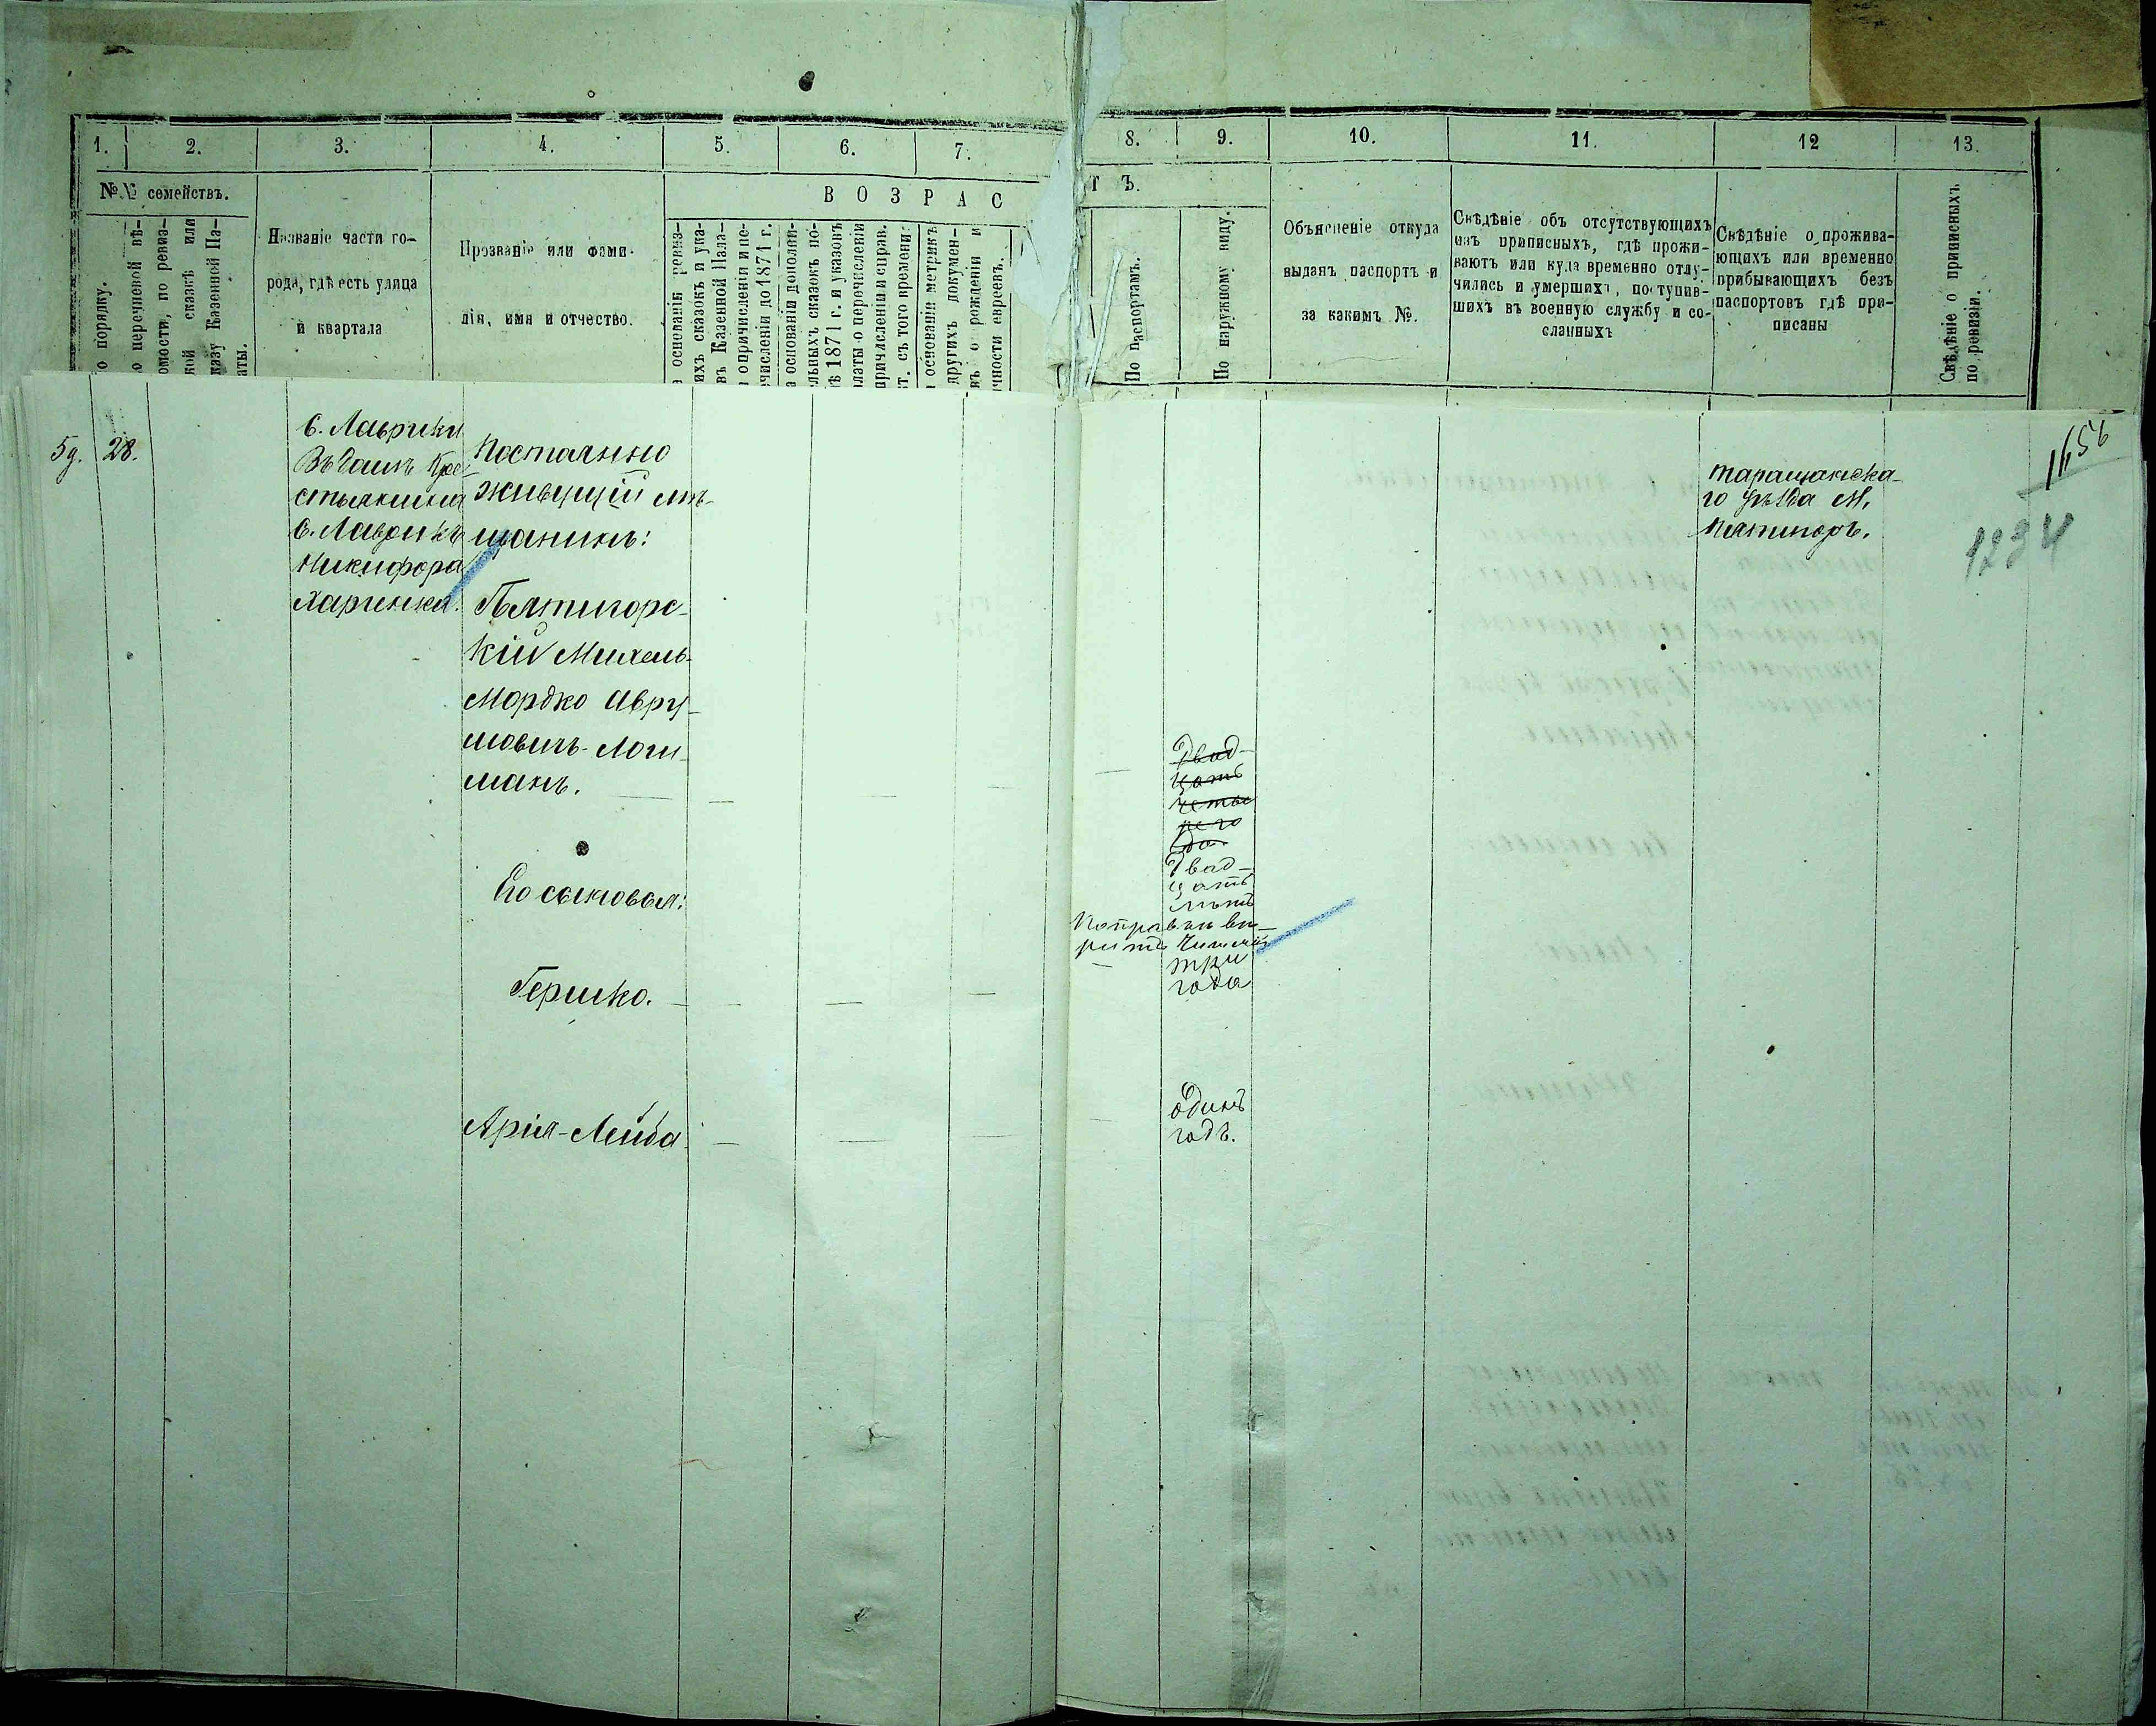 1.
2.
3.
4.
5.
6.
7.
8.
9.
10.
11.
12
13.
№ № семействъ.
о порядку.
о перечневой вѣ-
омости, по ревиз-
кой сказкѣ или
казу Казенной Па-
аты.
Названіе части го-
рода, гдѣ есть улица
и квартала
Прозваніе или фами-
лія, имя и отчество.
ВОЗРАС
ТЪ.
а основаніи ревиз-
ихъ сказокъ и ука-
въ Казенной Пала-
о причисленіи и пе-
ечисленіи до 1871 г.
а основаніи дополни-
льныхъ сказокъ по-
ѣ 1871 г. и указовъ
латы о перечисленіи
причисленіи и справ.
т. съ того времени.
основаніи метрикъ
другихъ докумен-
въ о рожденіи и
чности евреевъ.
По паспортамъ.
По наружному виду.
Объясненіе откуда
выданъ паспортъ и
за какимъ №.
Свѣдѣніе объ отсутствующихъ
изъ приписныхъ, гдѣ прожи-
ваютъ или куда временно отлу-
чились и умершихъ, поступив-
шихъ въ военную службу и со-
сланныхъ
Свѣдѣніе о прожива-
ющихъ или временно
прибывающихъ безъ
паспортовъ гдѣ при-
писаны
Свѣдѣніе о приписныхъ
по ревизіи.
59. 28.
с. Лаврики
Въ домѣ Кре-
стьянина
с. Лаврикъ
Никифора
Постоянно
живущій мѣ-
щанинъ:
Пятигорс-
кій Михель-
Мордко Авру-
мовичъ-Лоши-
манъ.
Его сыновья:
Гершко.
Арія-Лейба
Двад-
цать
четы
ре го
да.
Двад-
цать
лѣтъ
Поправкѣ вѣ-
рить
три
года
одинъ
годъ.
таращанска-
го уѣзда М.
Пятигоръ.
1656
1234